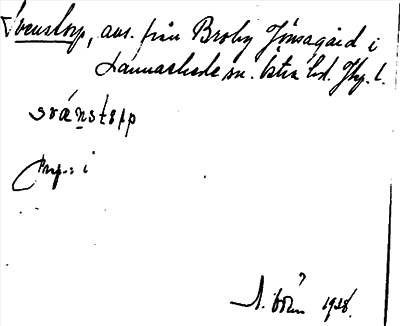 Svenstorp, avs. från Broby Jönsagård i
Lannaskede sn. Östra hd. Jkp. l.
svänstspp
Prep.: i
1928.